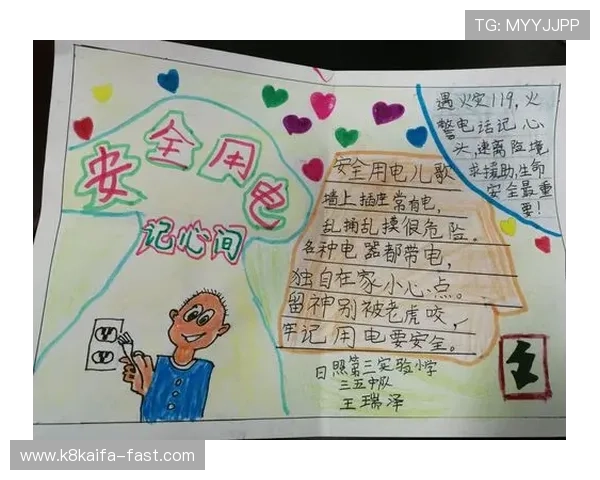 TG: MYYJJPP
安全用电
记心间
遇火灾119,火
警电话记心
头,速离险境
求援助,生命
安全最重
要!
安全用电儿歌
墙上插座常有电,
乱捅乱摸很危险。
各种电器都带电,
独自在家小心点。
留神别被老虎咬,
牢记用电要安全。
日照第三实验小学
三五中队
王瑞泽
www.k8kaifa-fast.com